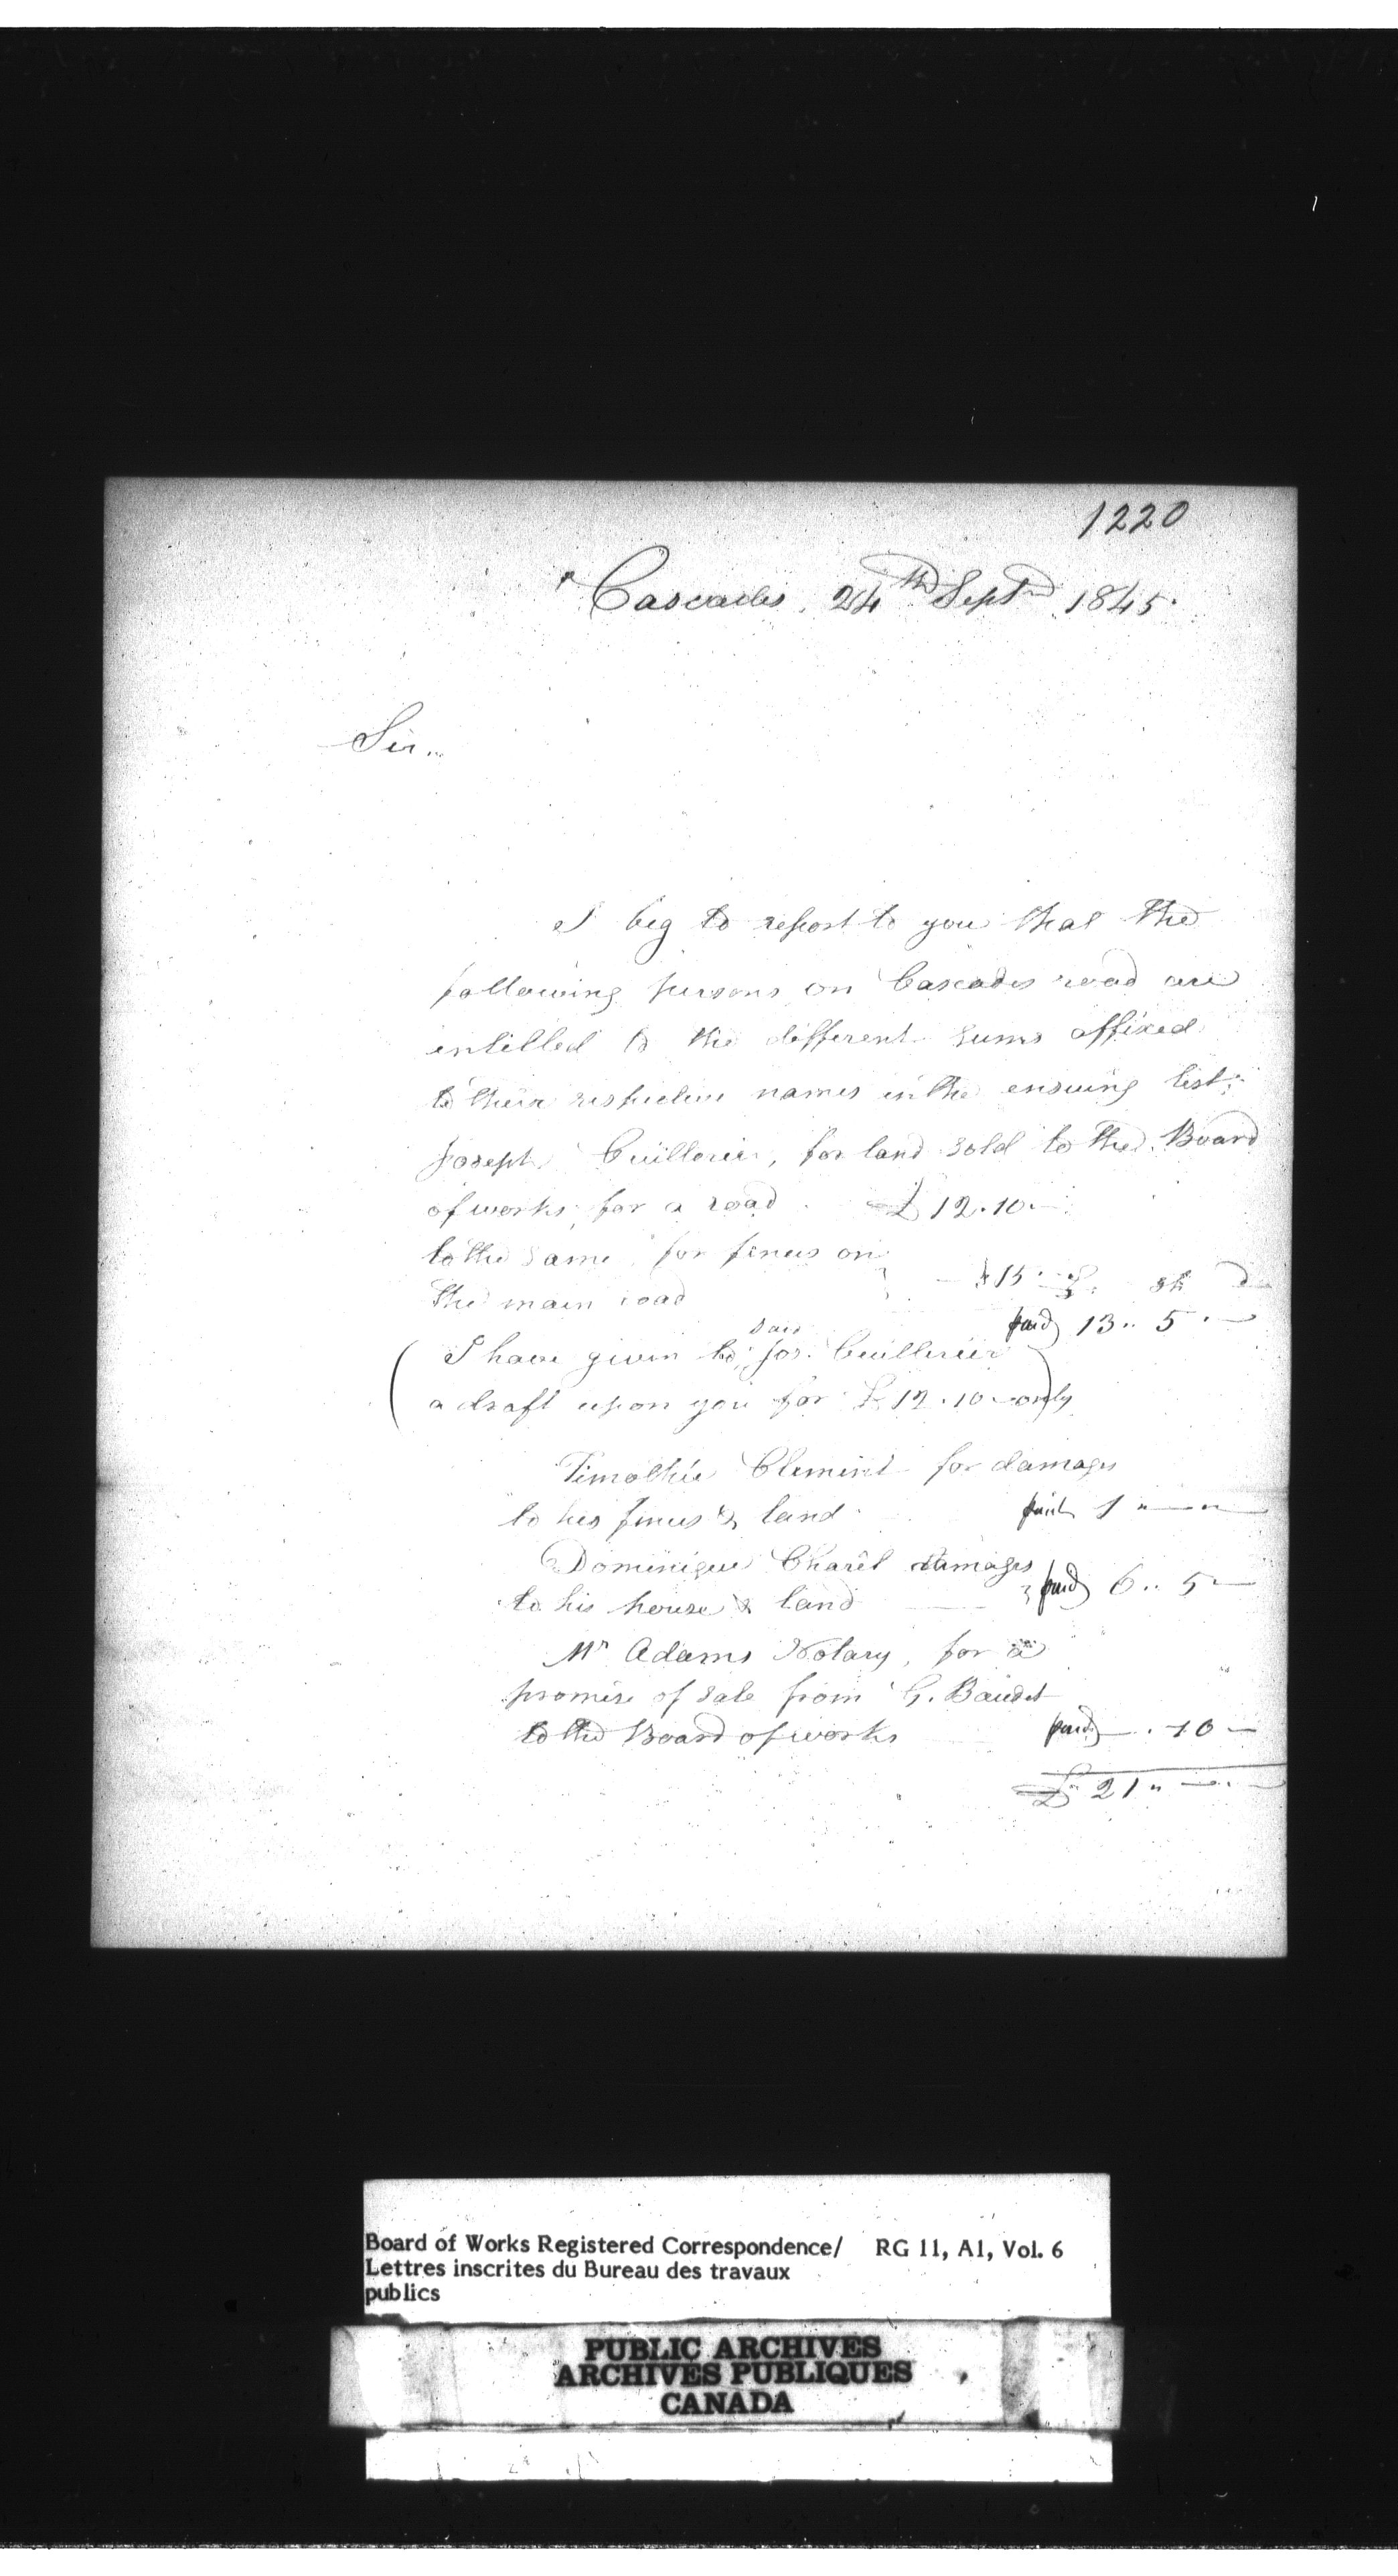 1220
Cascades, 24th Sept 1845.
Sir..
I beg to report to you that the
following persons on Cascades road are
entitled to the different sums affixed
to their respective names in the ensuing list:
Joseph Cuillerier, for land sold to the Board
of works for a road £ 12.10.—
to the same, for fences on
the main road 15 £ sh d
paid 13.. 5 . —
said
(I have given to Jos. Cuillerier)
a draft upon you for £ 12.10.— only
Timothée Clement for damages
to his fences & land paid 1 " — "
Dominique Charêt damages
to his house & land paid 6.. 5 —
Mr Adams Notary, for a
promise of sale from G. Baudet
to the Board of works paid — . 10 —
£ 21 " — . —
Board of Works Registered Correspondence/ RG 11, A1, Vol. 6
Lettres inscrites du Bureau des travaux
publics
PUBLIC ARCHIVES
ARCHIVES PUBLIQUES
CANADA